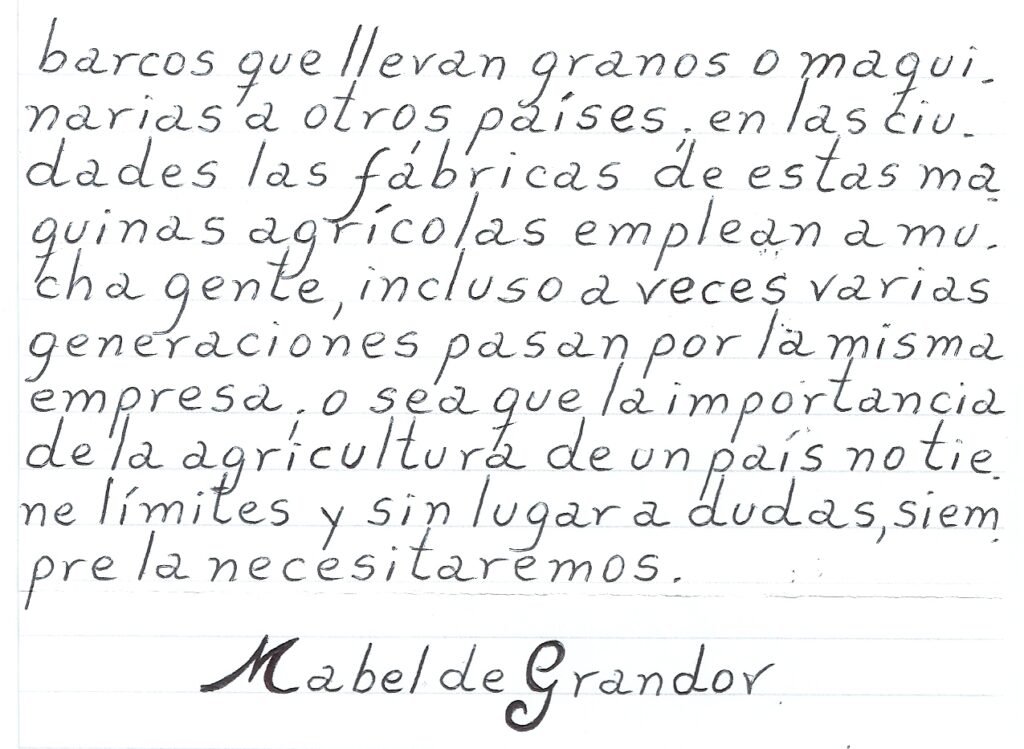 barcos que llevan granos o maqui-
narias a otros países, en las ciu-
dades las fábricas de estas ma
quinas agrícolas emplean a mu-
cha gente, incluso a veces varias
generaciones pasan por la misma
empresa, o sea que la importancia
de la agricultura de un país no tie-
ne límites y sin lugar a dudas, siem
pre la necesitaremos.
Mabel de Grandor